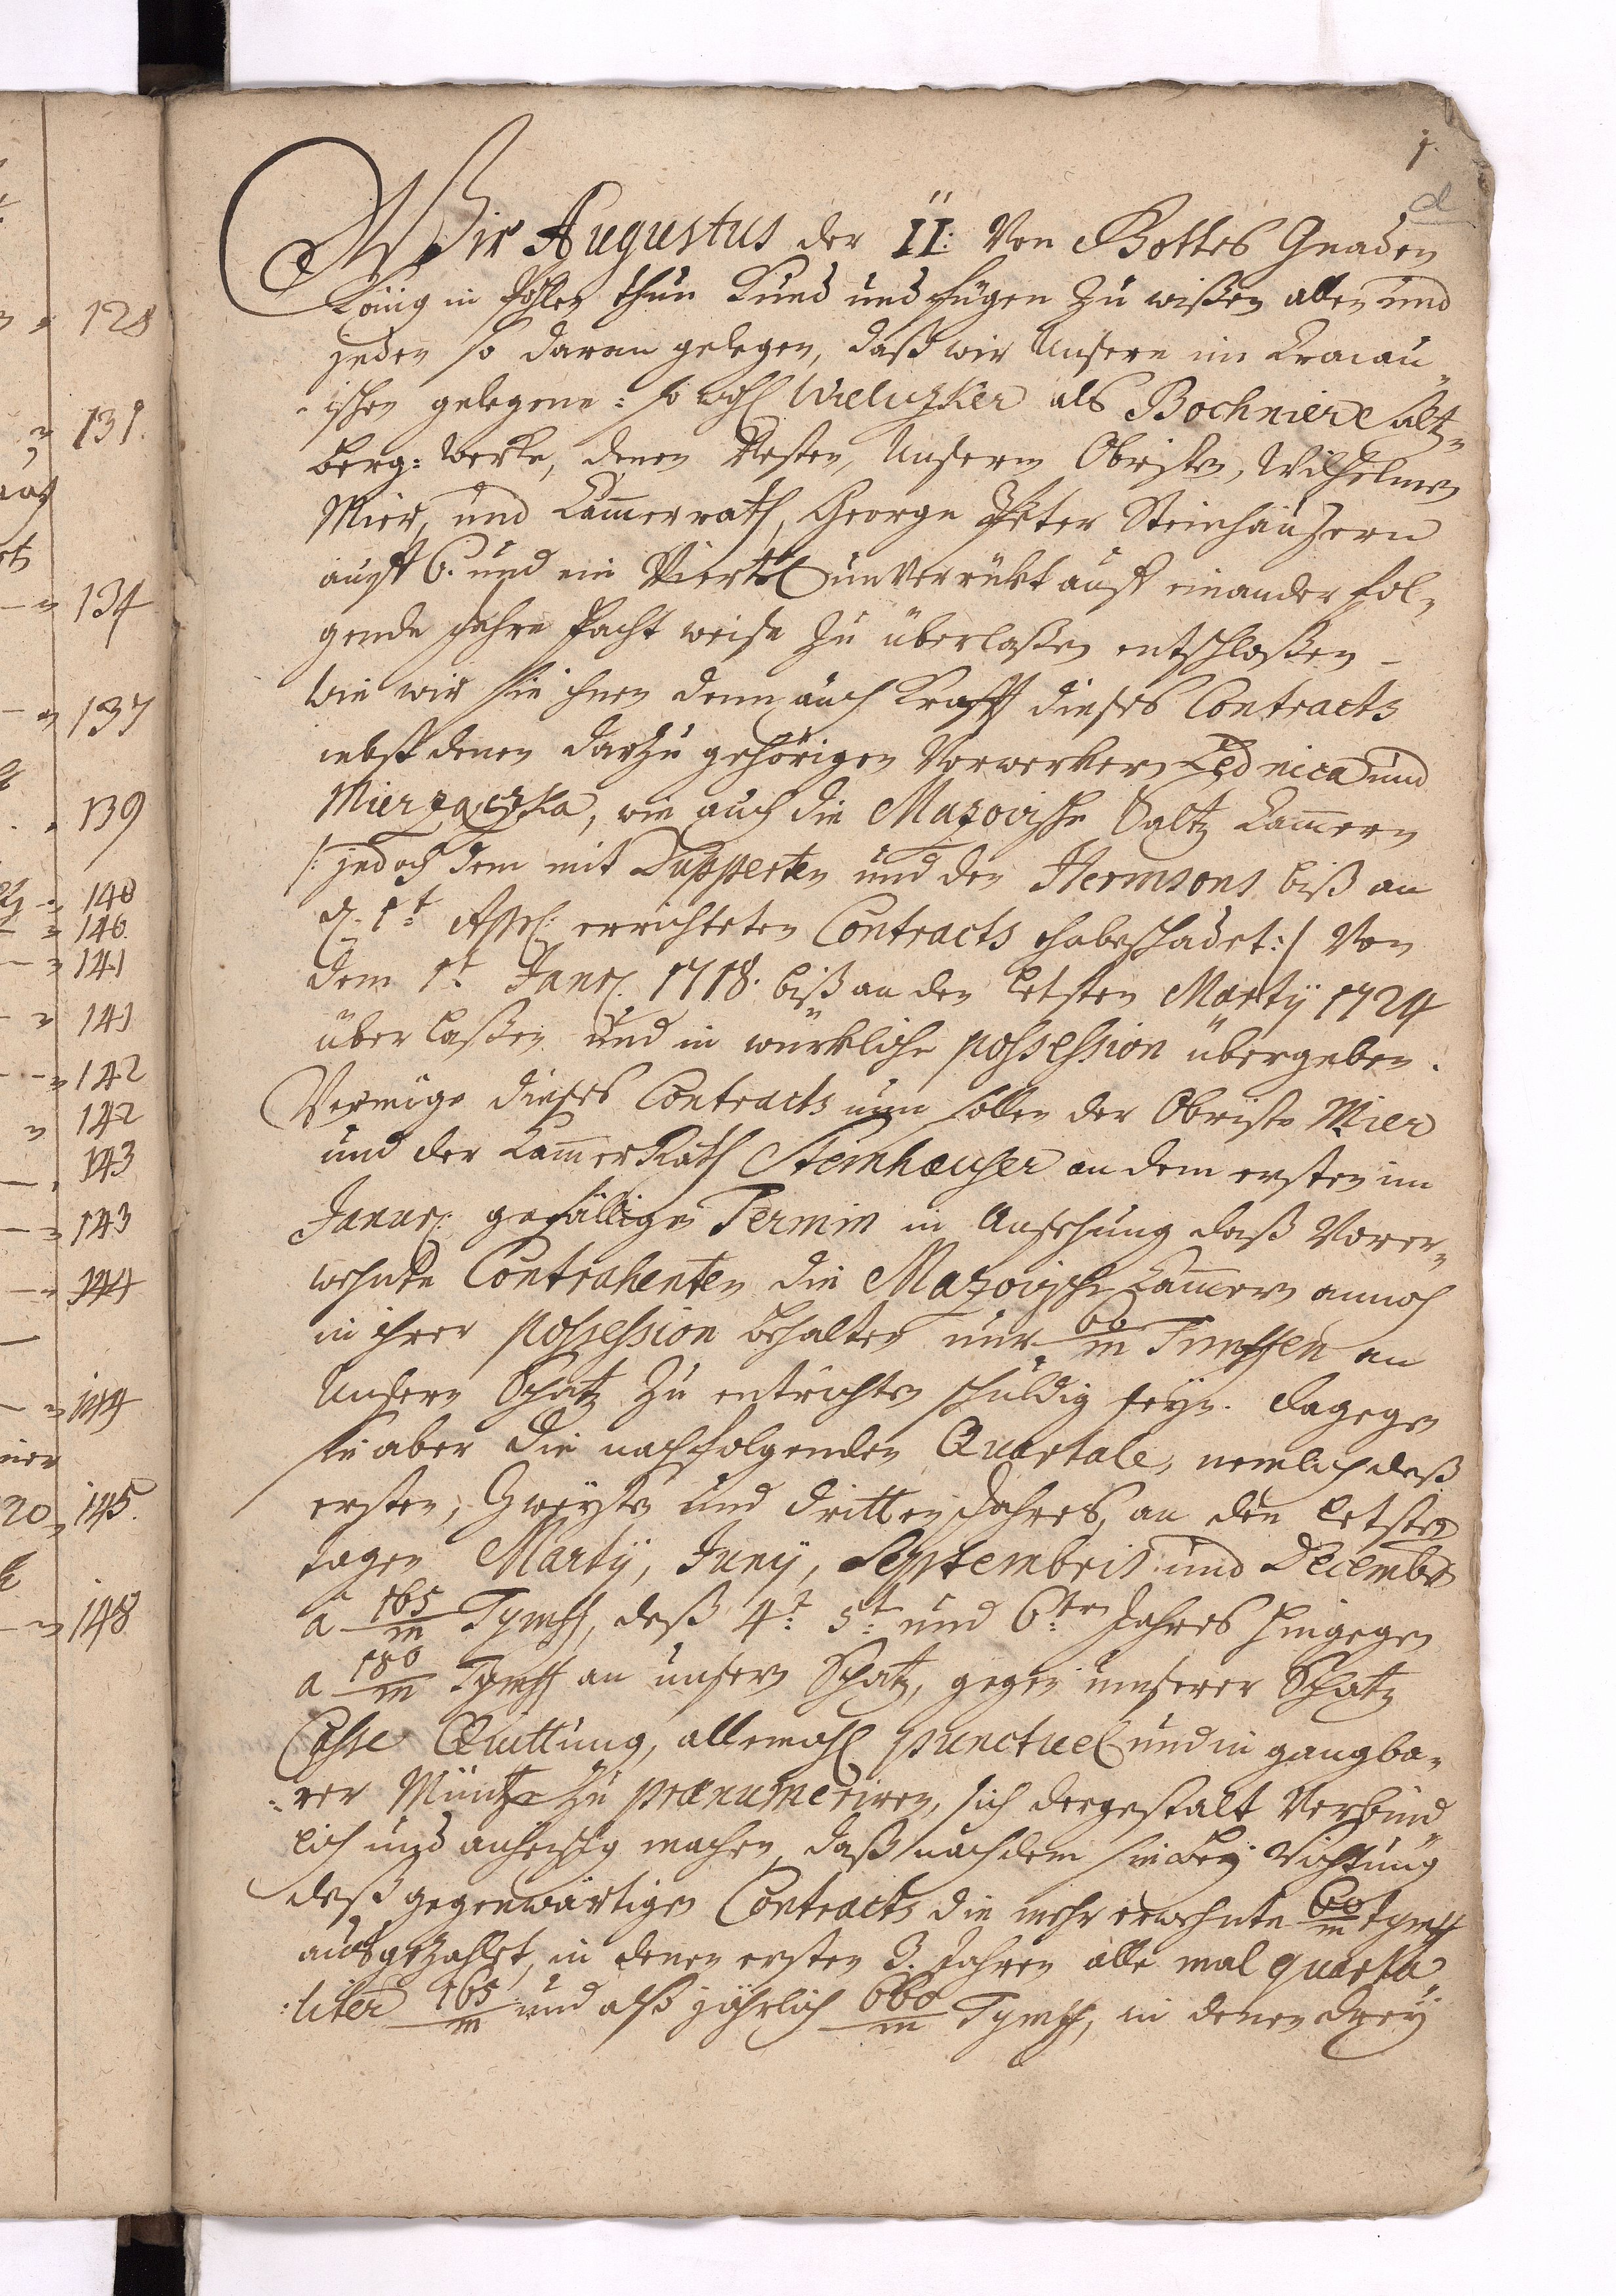 1.
d
Wir Augustus der II: Von Gottes Gnaden
König in Pohlen thun Kund und fügen zu wißen allen und
jeden so daran gelegen, daß wir Unsere im Cracau„
„ischen gelegene: so wohl Wieliczker als Bochnier Saltz„
berg: Werke, denen Vesten, Unserm Obristen, Wilhelmen
Mier, und Cammerrath, George Peter Steinhäußern
auff 6. und ein Viertel unverrükt auff einander fol„
gende Jahre Pacht weise zu überlaßen entschloßen –
wie wir sie ihnen denn auch Krafft dieses Contracts
nebst denen darzu gehörigen Vorwerkern Lędnica und
Mierzączka, wie auch die Mazovische Saltz Cammern
/: jedoch dem mit Dupperten und den Hermsons biß an
d. 1t Apr: errichteten Contracts ohnbeschadet :/ Von
dem 1t Janr. 1718. biß an den letsten Martÿ 1724
überlaßen und in würkliche possession übergeben.
Vermöge dieses Contracts nun sollen der Obriste Mier
und der Cammer Rath Steinhæuser an dem ersten im
Januar: gefälligen Termin in Ansehung daß Vorer„
wehnte Contrahenten die Mazovische Cammern annoch
in ihrer possession behalten nur 60/m Timpffen an
Unsern Schatz zu entrichten schuldig seyn. dagegen
sie aber die nachfolgenden Quartale, nemlich deß
ersten, Zweyten und dritten Jahres, an den letsten
tagen Martÿ, Junÿ, Septembris und Decembr
a 165/m Tympff, deß 4t. 5t. und 6ten Jahres hingegen
a 180/m Tympff an unsern Schatz, gegen unserer Schatz
Casse Quittung, allemahl punctuel und in gangba„
„rer Müntze zu prænumeriren, sich dergestalt Verbind„
lich und anheischig machen, daß nachdem sie bey Richtung
deß gegenwärtigen Contracts die mehr erwehnte 60/m tympff
ausgezahlet, in denen ersten 3. Jahren alle mal quarta„
„liter 165/m und alß jährlich 660/m Tympff, in denen drey
128
131.
134
137
139
140
140.
141
141
142
142
143
143
144
144
145.
148